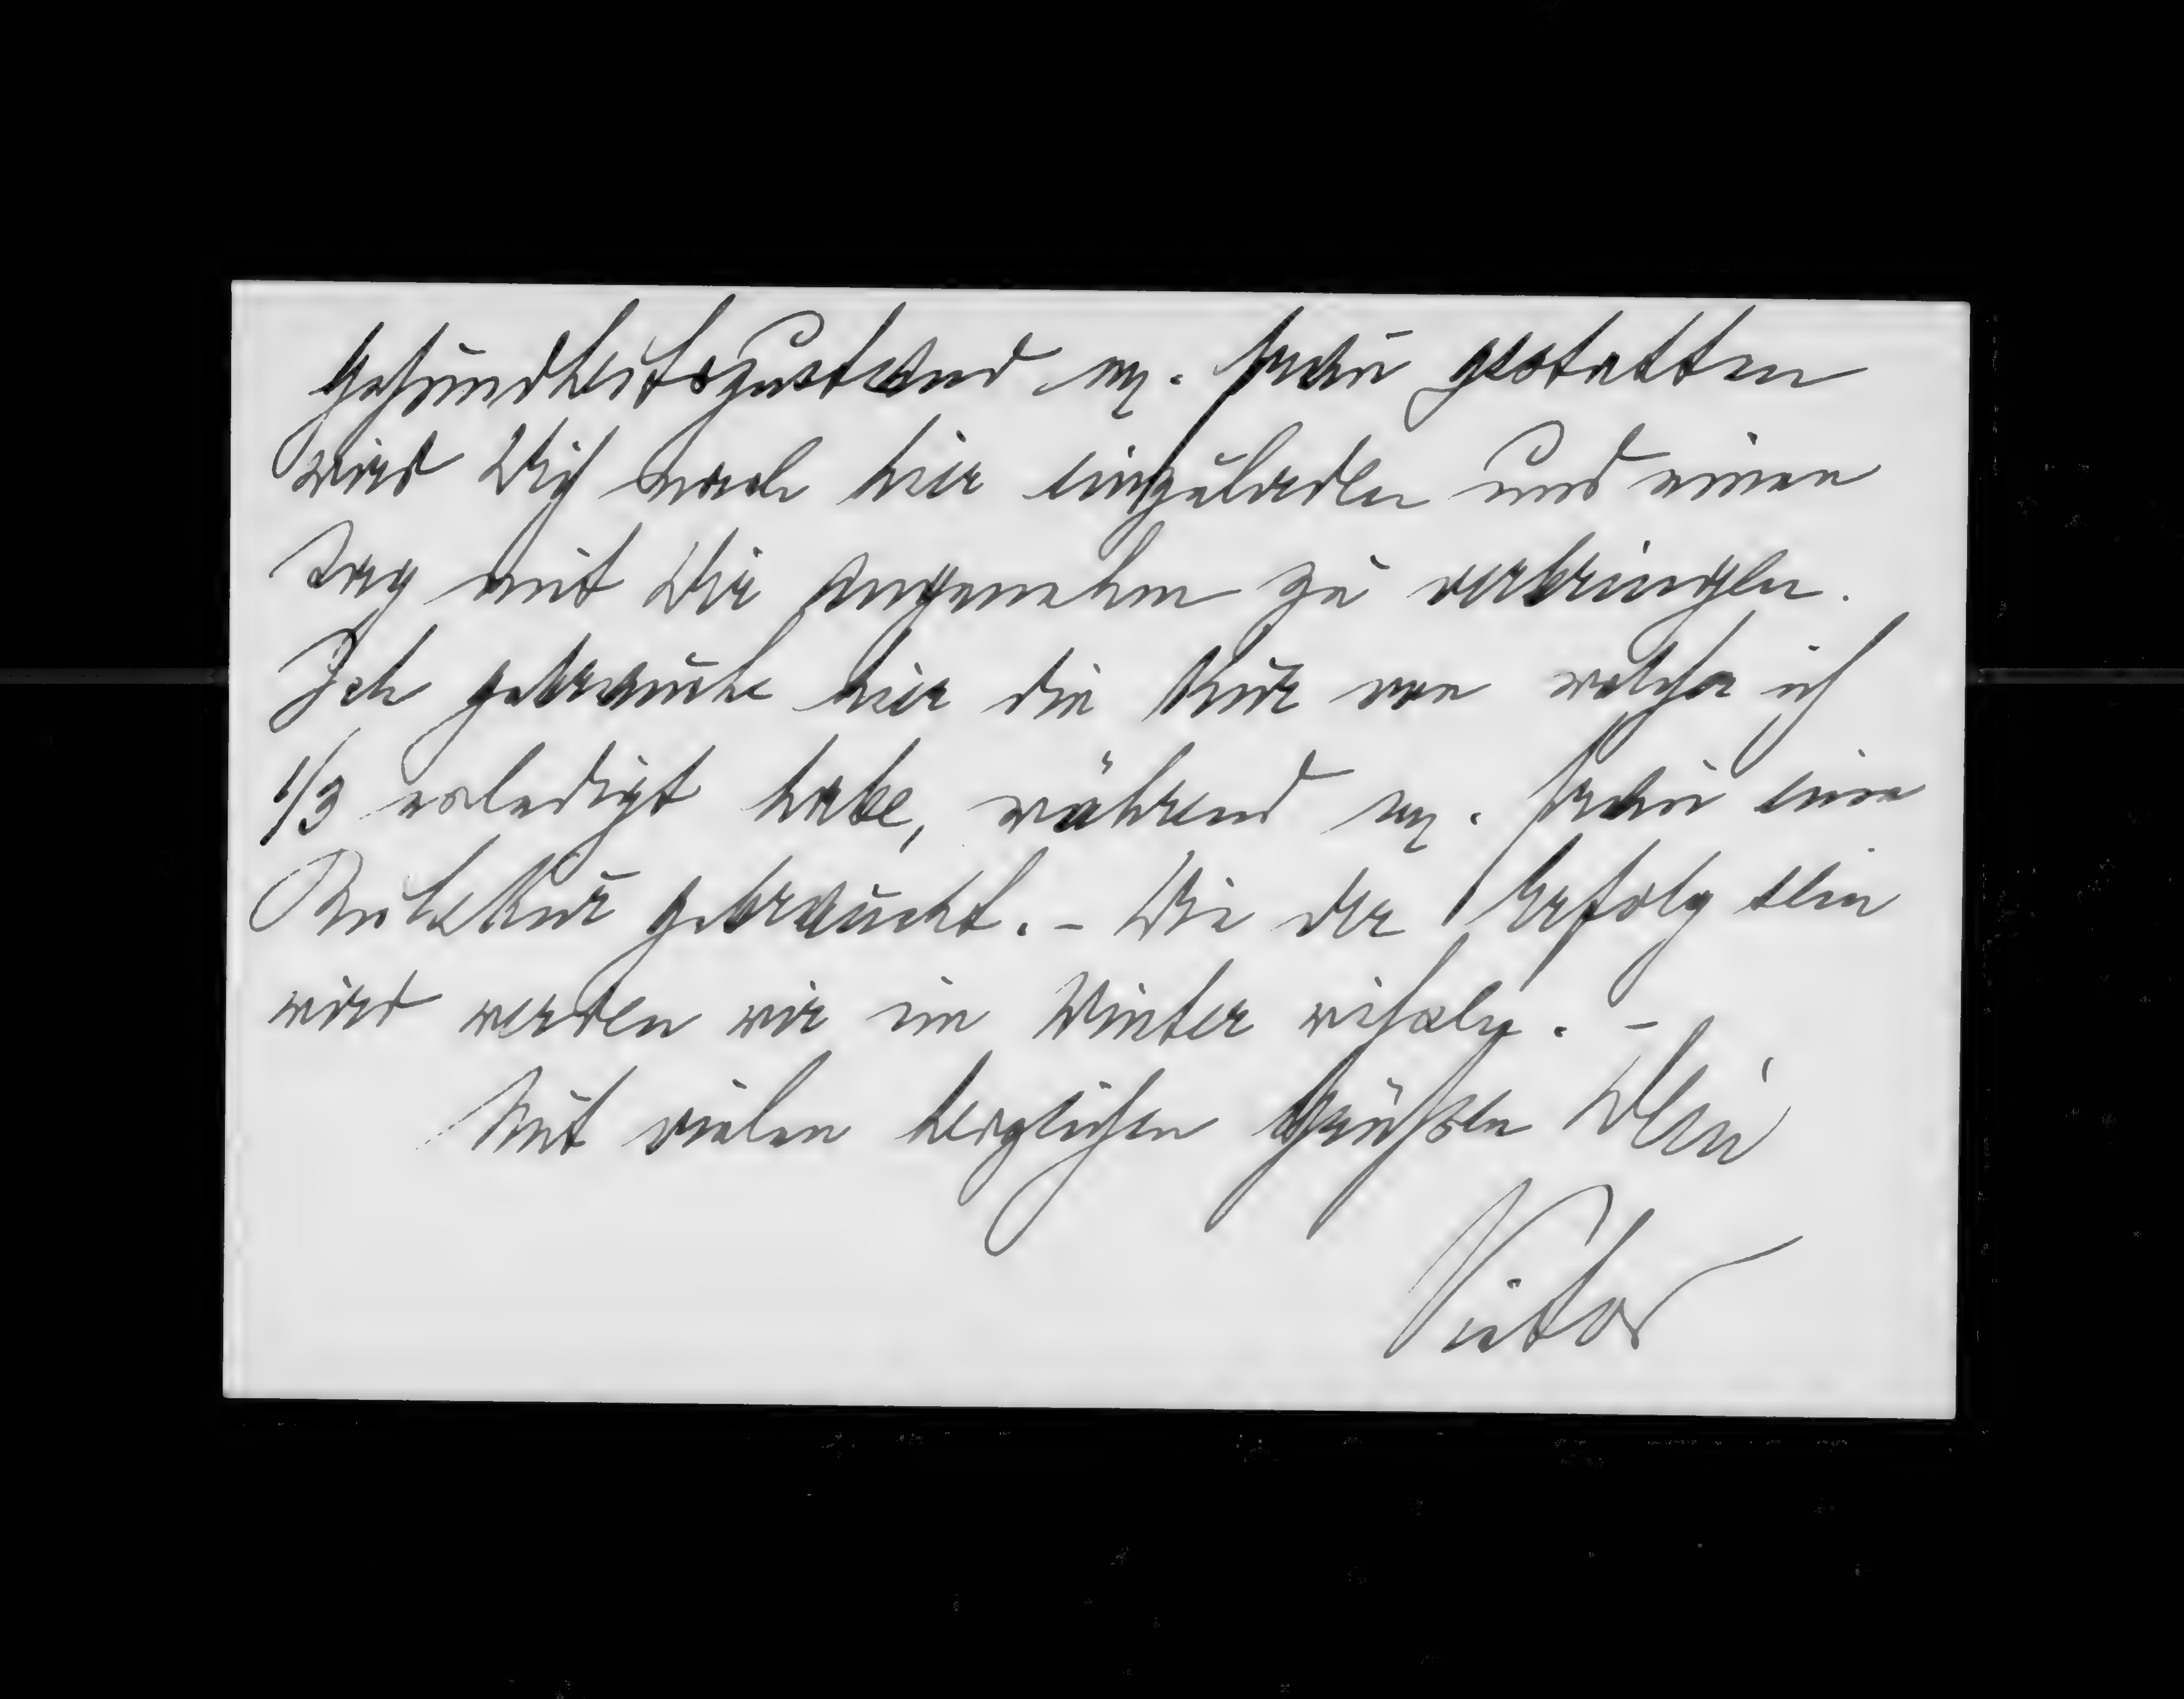 Gesundheitszustand m. Frau gestatten
wird Dich nach hier einzuladen und einen
Tag mit Dir angenehm zu verbringen.
Ich gebrauche hier die Kur von welcher ich
1/3 erledigt habe, während m. Frau eine
Ruhekur gebraucht. - Wie der Erfolg sein
wird werden wir im Winter sehen. -
Mit vielen herzlichen Grüßen Dein
Victor